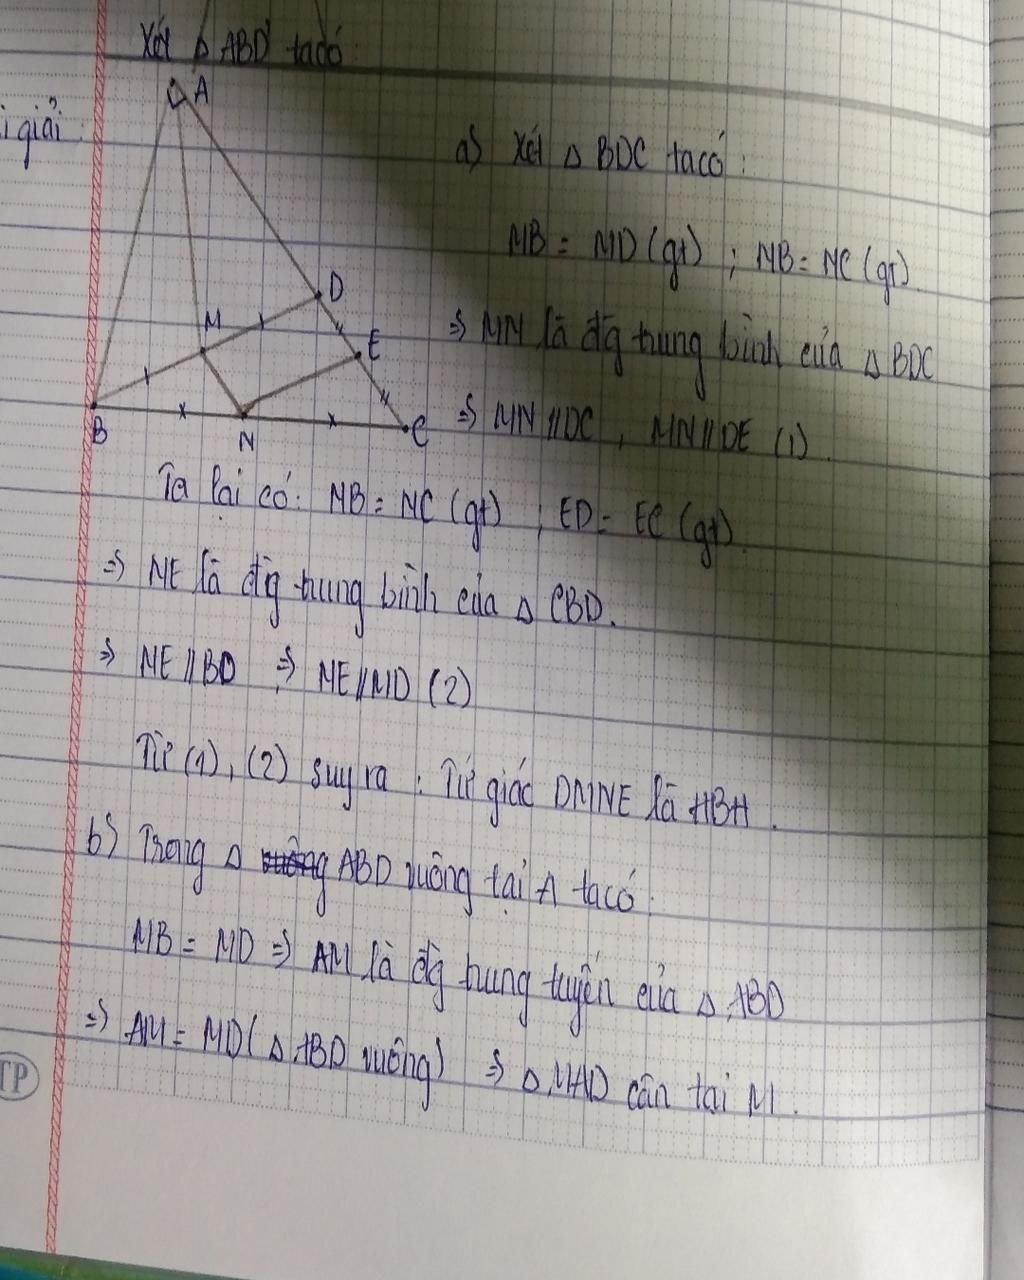 Xét Δ ABD ta có:
i giải
A
a) Xét Δ BDC ta có:
MB = MD (gt) ; NB = NC (gt).
D
M
E
⇒ MN là đg trung bình của Δ BDC
B
N
C
⇒ MN // DC , MN // DE (1).
Ta lại có: NB = NC (gt) ; ED = EC (gt).
⇒ NE là đg trung bình của Δ CBD.
⇒ NE // BD ⇒ NE // MD (2)
Từ (1), (2) suy ra : Tứ giác DMNE là HBH.
b) Trong Δ ABD vuông tại A ta có:
MB = MD ⇒ AM là đg trung tuyến của Δ ABD
⇒ AM = MD ( Δ ABD vuông) ⇒ Δ MAD cân tại M.
TP